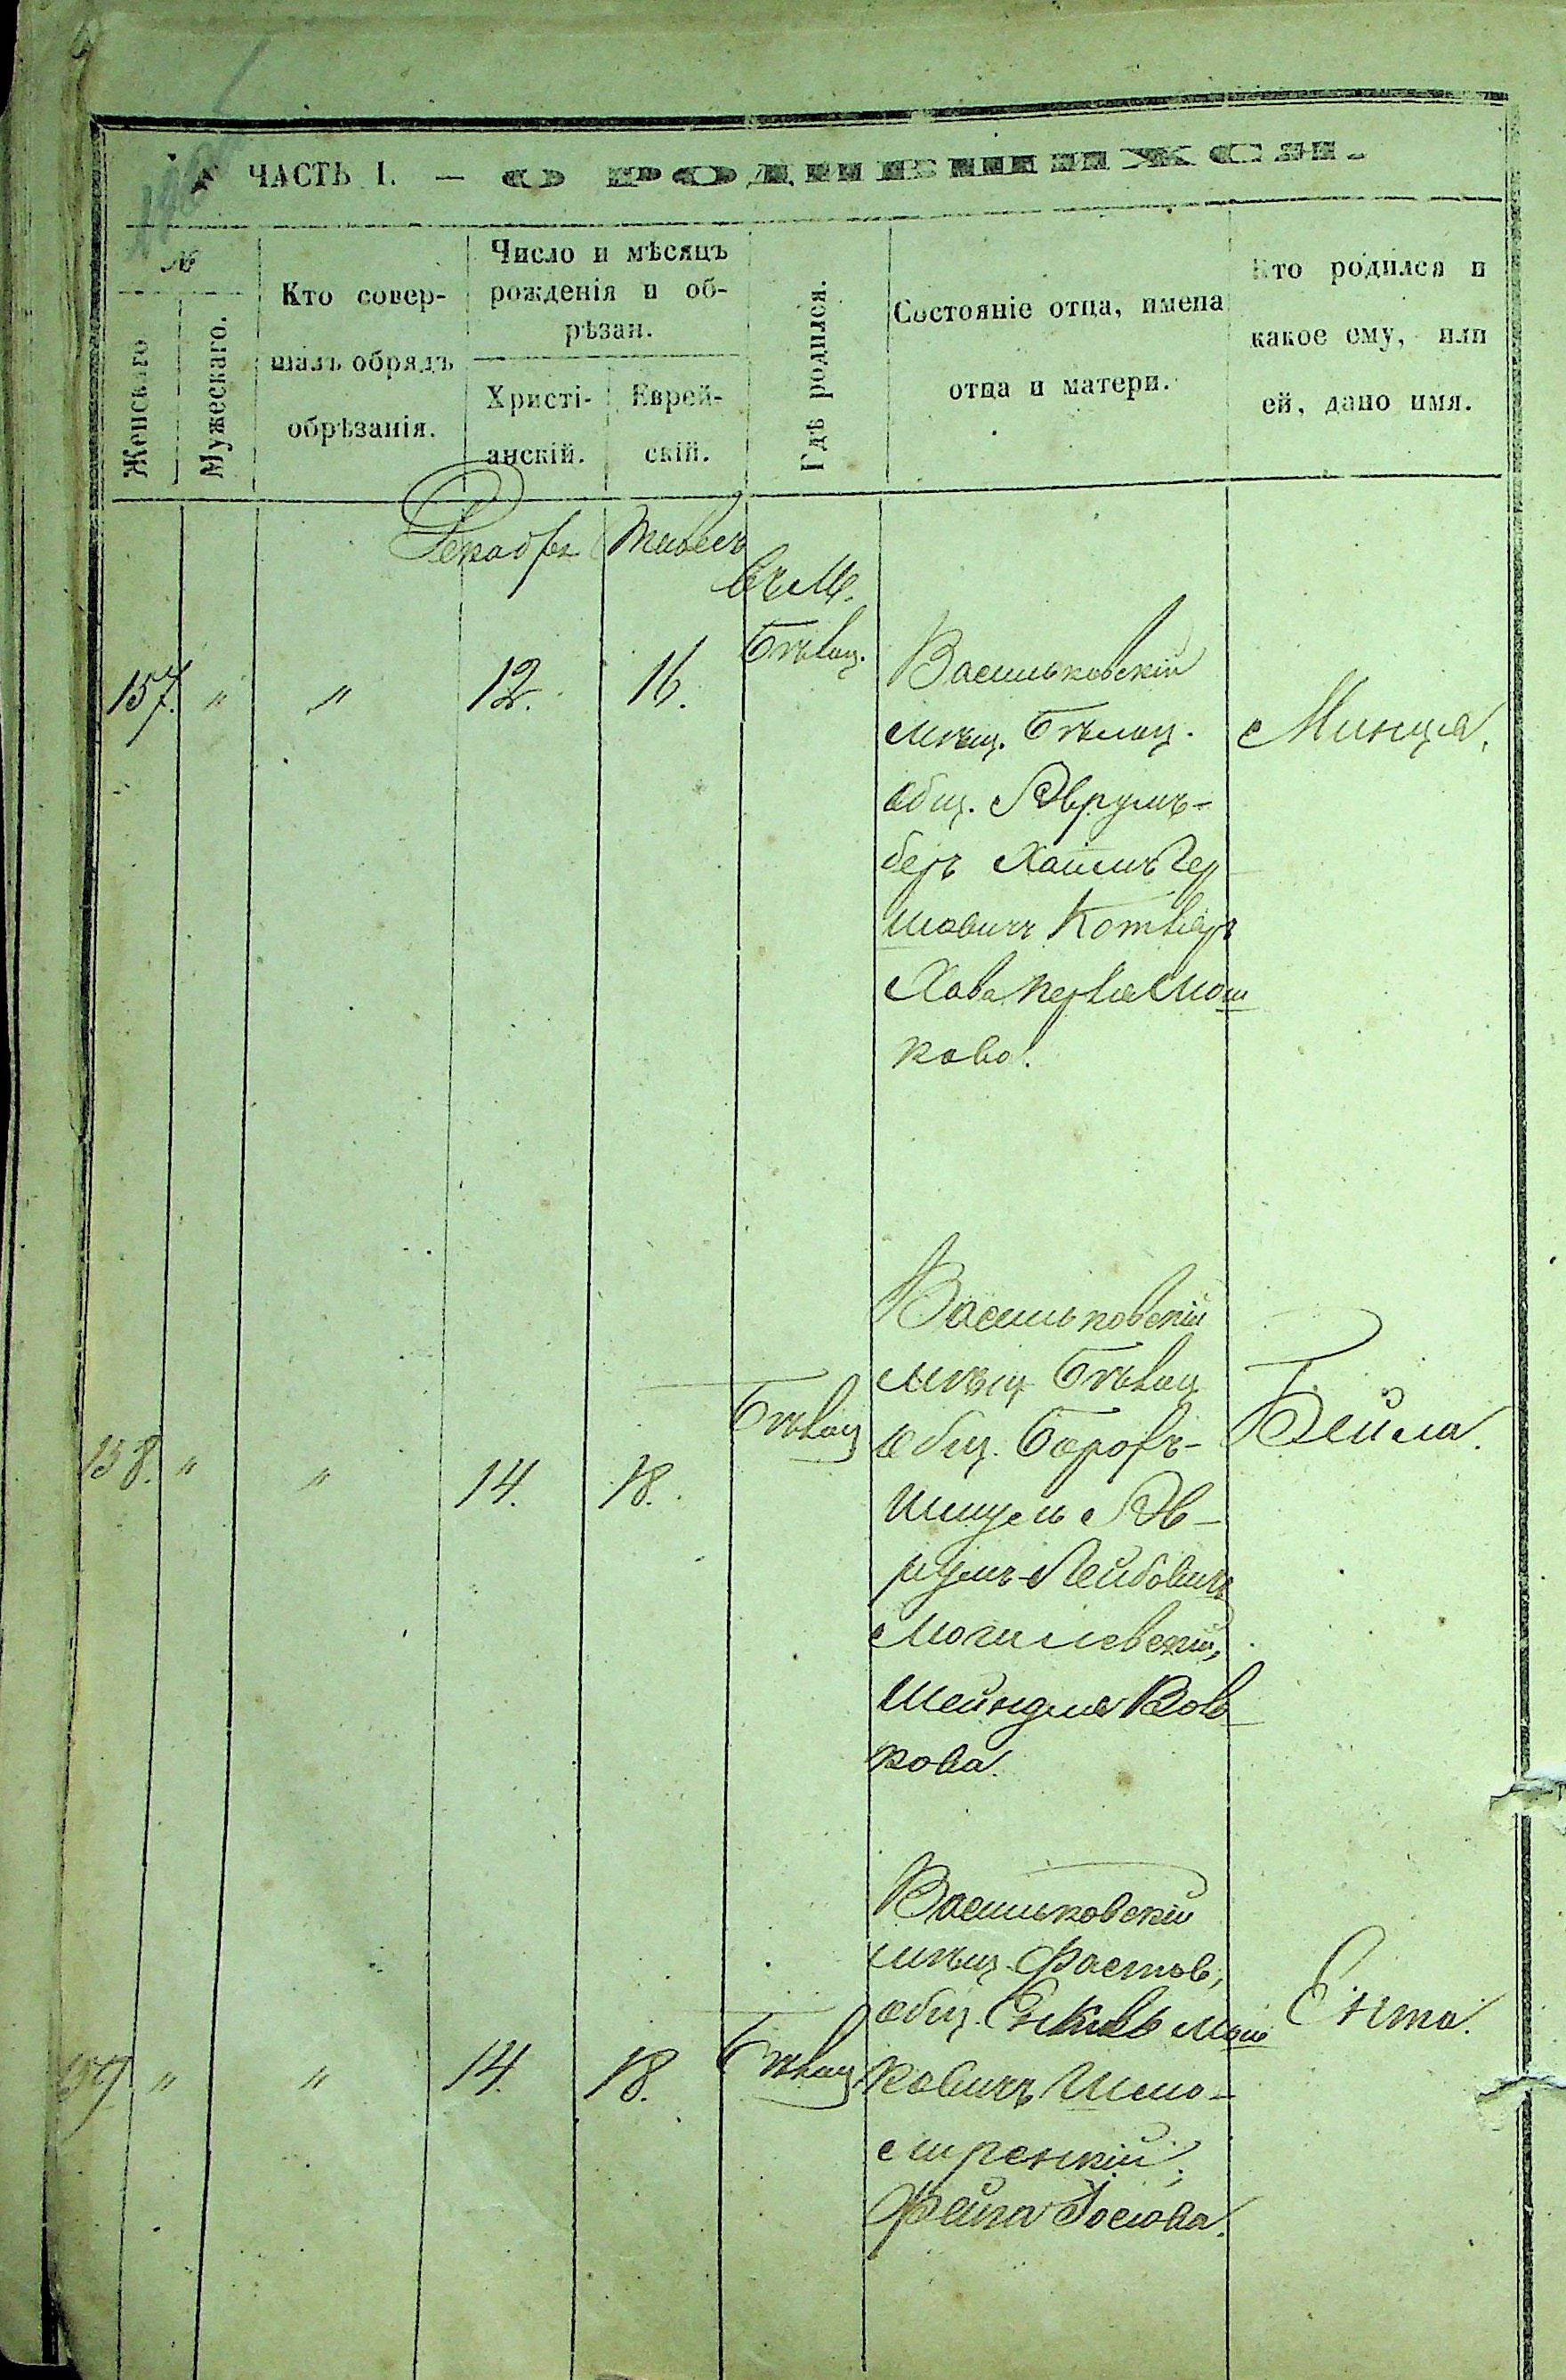 ЧАСТЬ I. — О РОДИВШИХСЯ.
№
Женскаго
Мужескаго.
Кто совер-
шалъ обрядъ
обрѣзанія.
Число и мѣсяцъ
рожденія и об-
рѣзан.
Христі-
анскій.
Еврей-
скій.
Гдѣ родился.
Состояніе отца, имена
отца и матери.
Кто родился и
какое ему, или
ей, дано имя.
Декабрь Тивесъ
въ М.
Бѣлоц.
157. " " 12. 16.
Васильковскій
мѣщ. Бѣлоц.
общ. Аврумъ-
беръ Хаимъ Гер
шовичъ Котляръ
Хава Перля Мош
кова.
Минця.
158. " " 14. 18. Бѣлоц
Васильковскій
мѣщ Бѣлоц
общ. Борохъ-
Шмуль Ав-
румъ-Лейбовичъ
Могилевскій,
Шейндля Вов
кова.
Бейла.
159 " " 14. 18. Бѣлоц
Васильковскій
мѣщ. Фастов,
общ. Мош
ковичъ
Фейга Іосіова.
Ента.